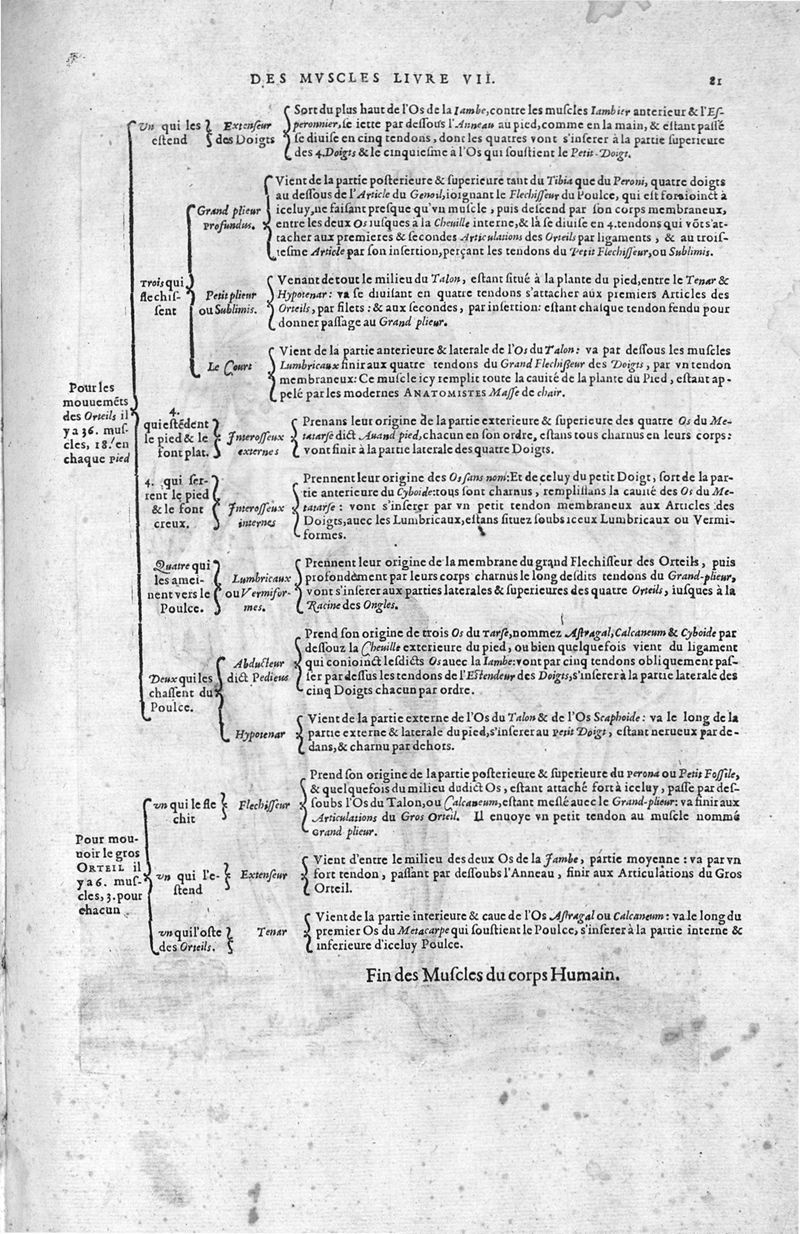 DES MVSCLES LIVRE VII. 81
Vn qui les
estend
Extenseur
des Doigts
Sort du plus haut de l'Os de la Iambe, contre les muscles Iambier anterieur & l'Es-
peronnier, se iette par dessous l'Anneau au pied, comme en la main, & estant passé
se diuise en cinq tendons, dont les quatres vont s'inserer à la partie superieure
des 4. Doigts & le cinquiesme à l'Os qui soustient le Petit-Doigt.
Grand plieur
Profundus.
Vient de la partie posterieure & superieure tant du Tibia que du Peroni, quatre doigts
au dessous de l'Article du Genoil, ioignant le Flechisseur du Poulce, qui est fort ioinct à
iceluy, ne faisant presque qu'vn muscle, puis descend par son corps membraneux,
entre les deux Os iusques à la Cheuille interne, & là se diuise en 4. tendons qui võts'at-
tacher aux premieres & secondes Articulations des Orteils par ligaments, & au trois-
iesme Article par son insertion, perçant les tendons du Petit Flechisseur, ou Sublimis.
Trois qui
flechis-
sent
Petit plieur
ou Sublimis.
Venant de tout le milieu du Talon, estant situé à la plante du pied, entre le Tenar &
Hypotenar: va se diuisant en quatre tendons s'attacher aux premiers Articles des
Orteils, par filets: & aux secondes, par insertion: estant chasque tendon fendu pour
donner passage au Grand plieur.
Le Court
Vient de la partie anterieure & laterale de l'Os du Talon: va par dessous les muscles
Lumbricaux finir aux quatre tendons du Grand Flechißeur des Doigts, par vn tendon
membraneux: Ce muscle icy remplit toute la cauité de la plante du Pied, estant ap-
pelé par les modernes ANATOMISTES Masse de chair.
Pour les
mouuemẽts
des Orteils il
y a 36. mus-
cles, 18. en
chaque pied
4.
qui estẽdent
le pied & le
font plat.
Interosseux
externes
Prenans leur origine de la partie exterieure & superieure des quatre Os du Me-
tatarse dict Auand pied, chacun en son ordre, estans tous charnus en leurs corps:
vont finir à la partie laterale des quatre Doigts.
4. qui ser-
rent le pied
& le font
creux.
Interosseux
internes
Prennent leur origine des Os sans nom: Et de celuy du petit Doigt, sort de la par-
tie anterieure du Cyboide: tous sont charnus, remplissans la cauité des Os du Me-
tatarse: vont s'inserer par vn petit tendon membraneux aux Articles des
Doigts, auec les Lumbricaux, estans situez soubs iceux Lumbricaux ou Vermi-
formes.
Quatre qui
les amei-
nent vers le
Poulce.
Lumbricaux
ou Vermifor-
mes.
Prennent leur origine de la membrane du grand Flechisseur des Orteils, puis
profondèment par leurs corps charnus le long desdits tendons du Grand-plieur,
vont s'inserer aux parties laterales & superieures des quatre Orteils, iusques à la
Racine des Ongles.
Deux qui les
chassent du
Poulce.
Abducteur
dict Pedieus
Prend son origine de trois Os du Tarse, nommez Astragal, Calcaneum & Cyboide par
dessouz la Cheuille exterieure du pied, ou bien quelquefois vient du ligament
qui conioinct lesdicts Os auec la Iambe: vont par cinq tendons obliquement pas-
ser par dessus les tendons de l'Estendeur des Doigts, s'inserer à la partie laterale des
cinq Doigts chacun par ordre.
Hypotenar
Vient de la partie externe de l'Os du Talon & de l'Os Scaphoide: va le long de la
partie externe & laterale du pied, s'inserer au Petit Doigt, estant nerueux par de-
dans, & charnu par dehors.
Pour mou-
uoir le gros
ORTEIL il
y a 6. mus-
cles, 3. pour
chacun
vn qui le fle
chit
Flechisseur
Prend son origine de la partie posterieure & superieure du Perona ou Petit Fossile,
& quelquefois du milieu dudict Os, estant attaché fort à iceluy, passe par des-
soubs l'Os du Talon, ou Calcaneum, estant meslé auec le Grand-plieur: va finir aux
Articulations du Gros Orteil. Il enuoye vn petit tendon au muscle nommé
Grand plieur.
vn qui l'e-
stend
Extenseur
Vient d'entre le milieu des deux Os de la Jambe, partie moyenne: va par vn
fort tendon, passant par dessoubs l'Anneau, finir aux Articulations du Gros
Orteil.
vn qui l'oste
des Orteils.
Tenar
Vient de la partie interieure & caue de l'Os Astragal ou Calcaneum: va le long du
premier Os du Metacarpe qui soustient le Poulce, s'inserer à la partie interne &
inferieure d'iceluy Poulce.
Fin des Muscles du corps Humain.